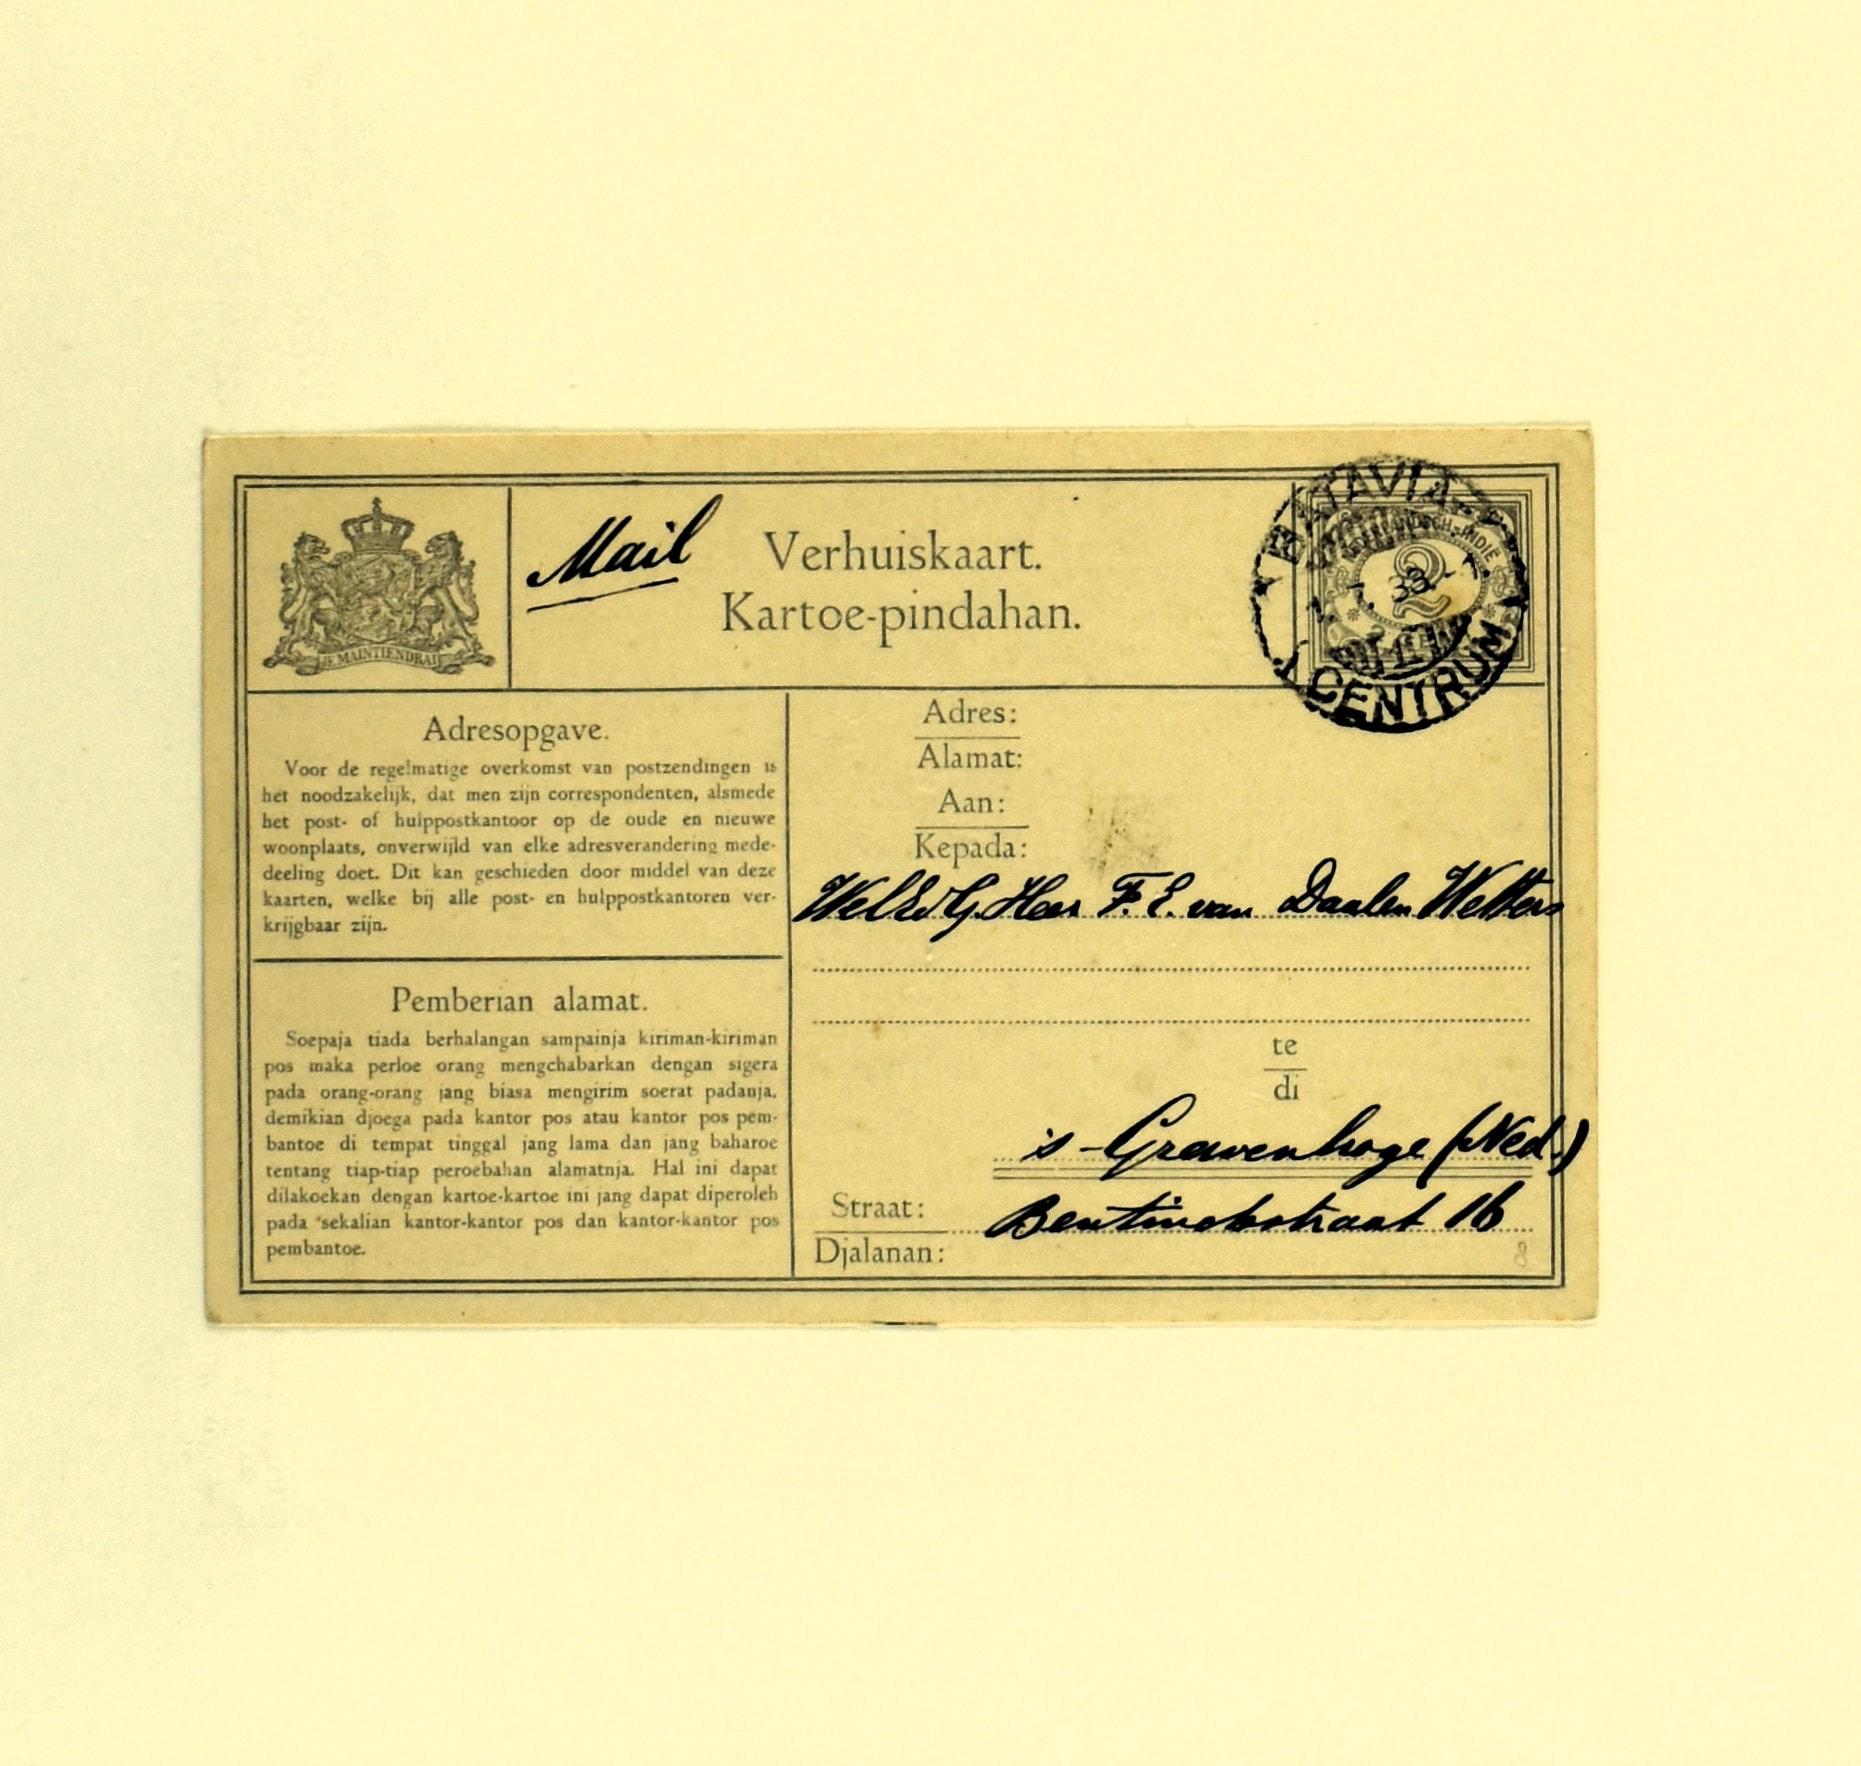 JE MAINTIENDRAI
Mail
Verhuiskaart.
Kartoe-pindahan.
BATAVIA
CENTRUM
NEDERLANDSCH-INDIË
2
33
Adresopgave.
Voor de regelmatige overkomst van postzendingen is
het noodzakelijk, dat men zijn correspondenten, alsmede
het post- of hulppostkantoor op de oude en nieuwe
woonplaats, onverwijld van elke adresverandering mede-
deeling doet. Dit kan geschieden door middel van deze
kaarten, welke bij alle post- en hulppostkantoren ver-
krijgbaar zijn.
Pemberian alamat.
Soepaja tiada berhalangan sampainja kiriman-kiriman
pos maka perloe orang mengchabarkan dengan sigera
pada orang-orang jang biasa mengirim soerat padanja,
demikian djoega pada kantor pos atau kantor pos pem-
bantoe di tempat tinggal jang lama dan jang baharoe
tentang tiap-tiap peroebahan alamatnja. Hal ini dapat
dilakoekan dengan kartoe-kartoe ini jang dapat diperoleh
pada sekalian kantor-kantor pos dan kantor-kantor pos
pembantoe.
Adres:
Alamat:
Aan:
Kepada:
WelEdG. Heer F. E. van Daalen Wetters
te
di
's-Gravenhage (Ned.)
Straat: Bentinckstraat 16
Djalanan:
8